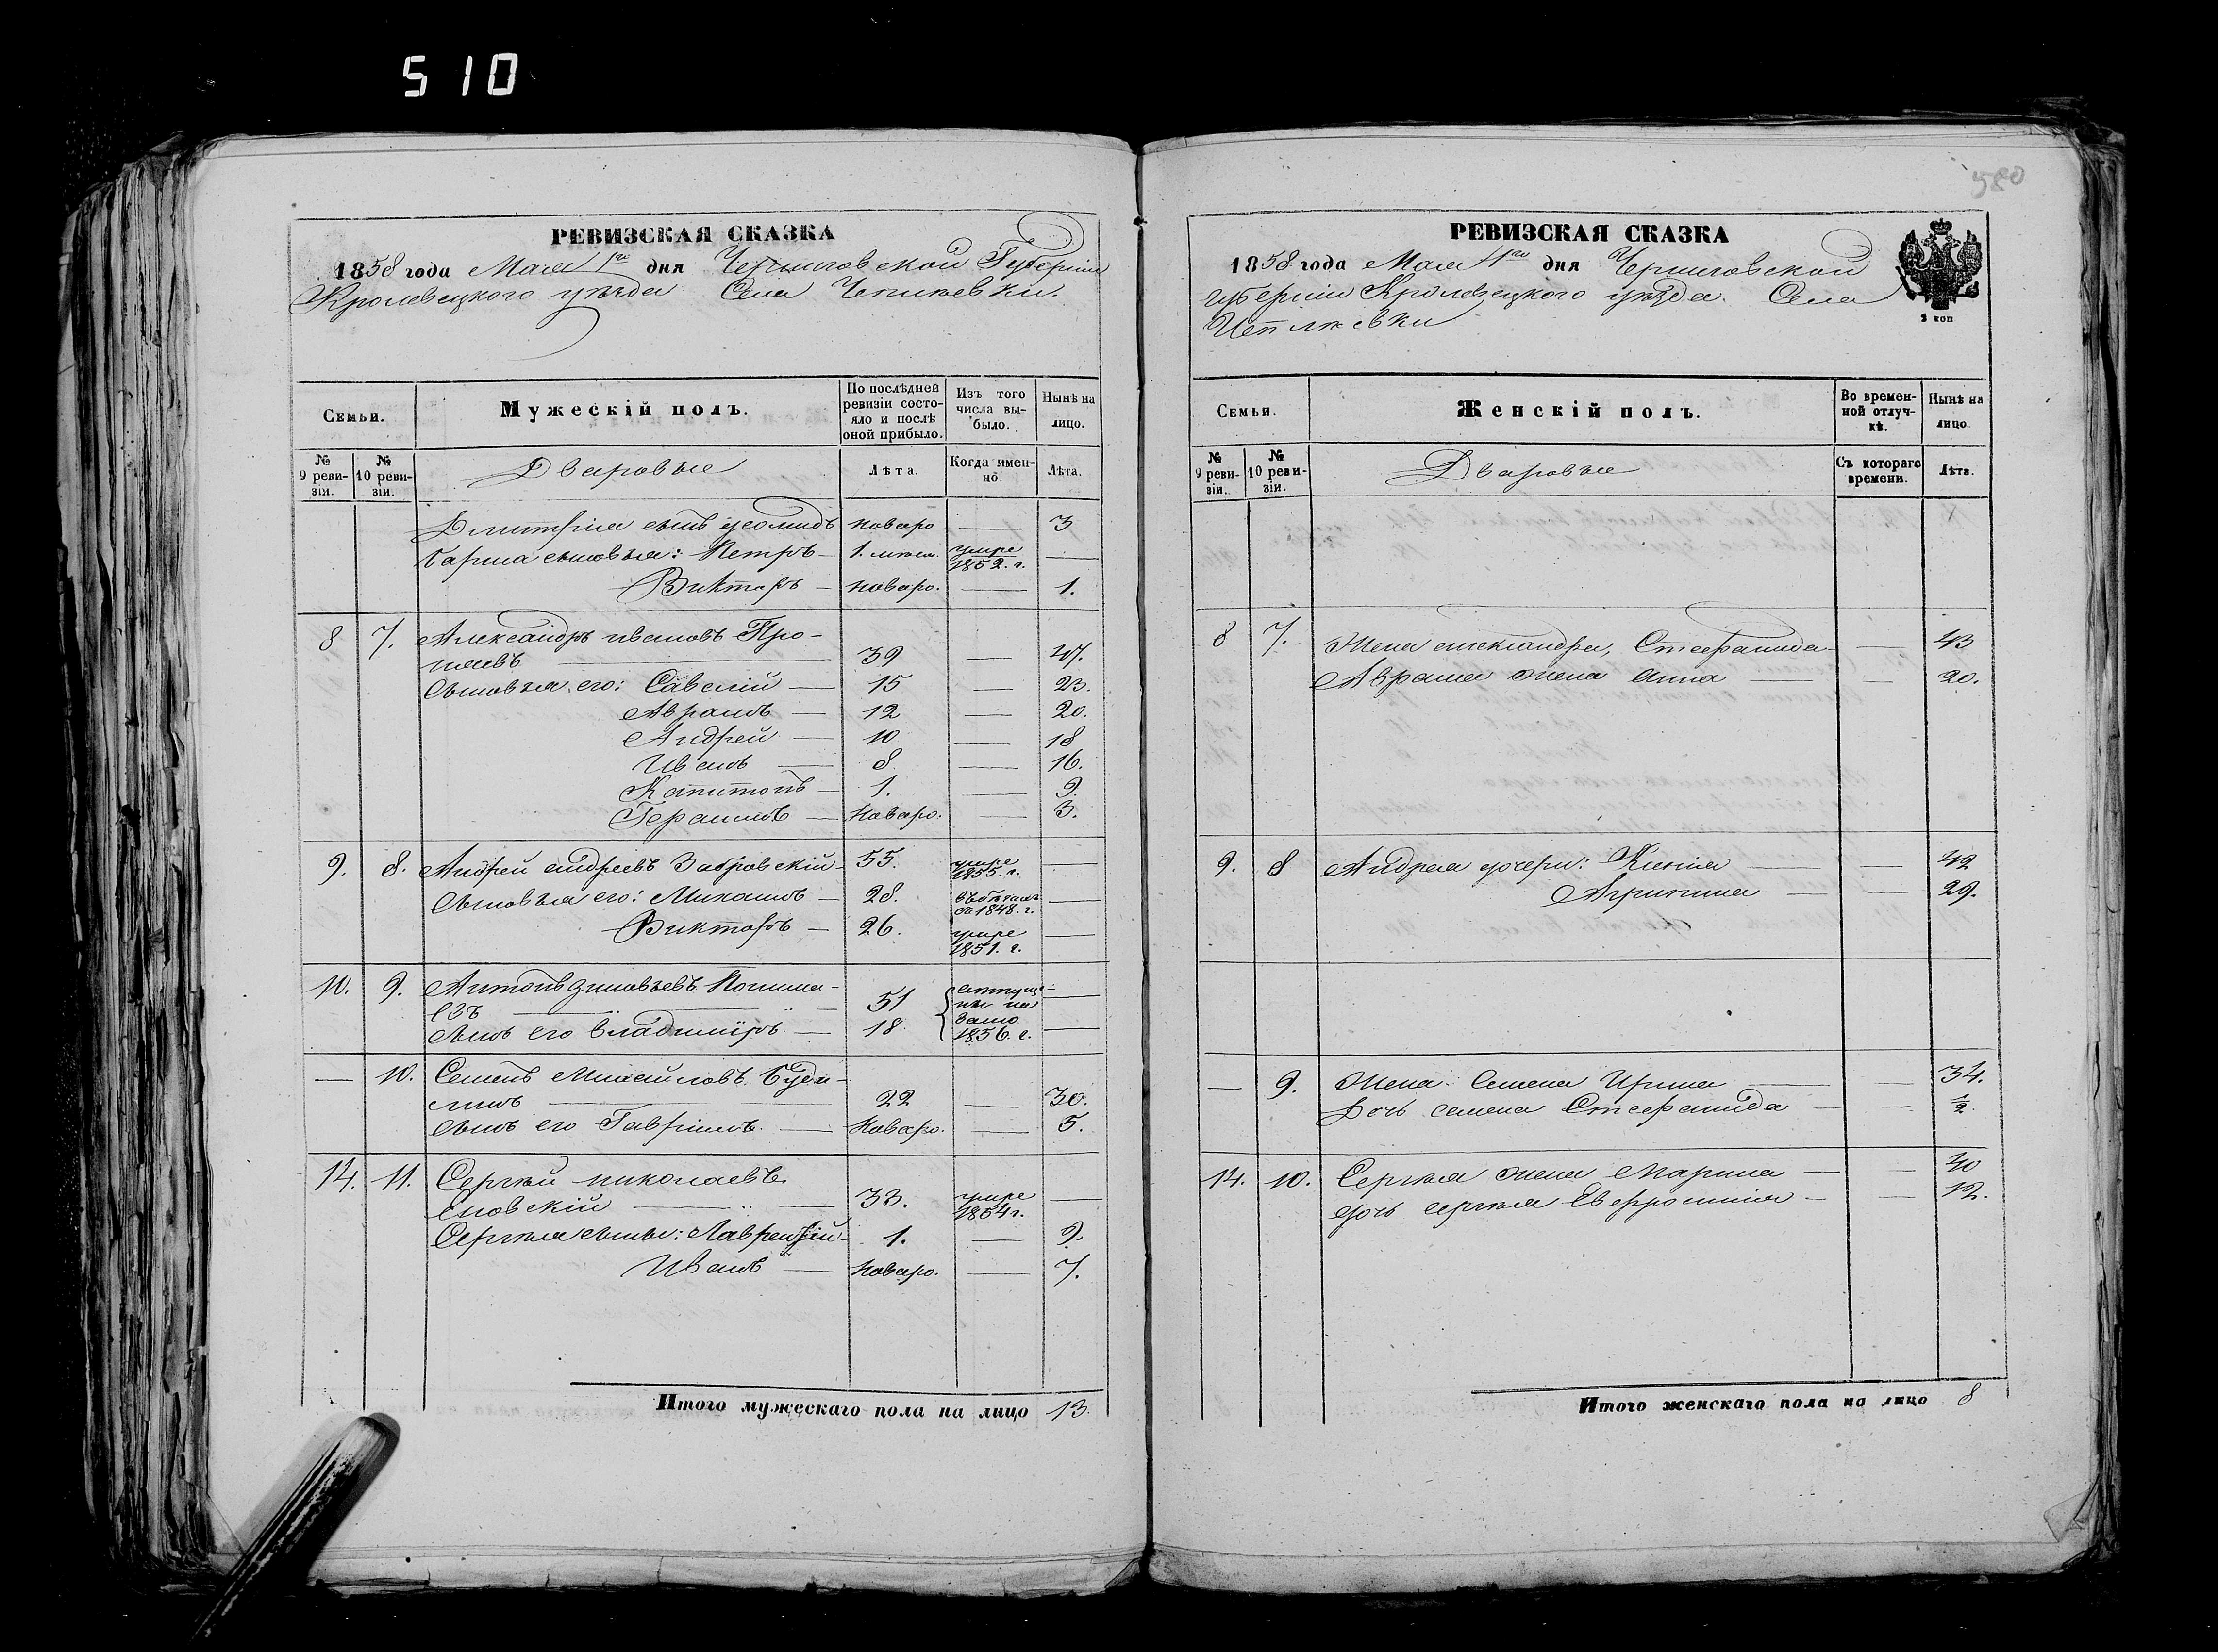 510
580
РЕВИЗСКАЯ СКАЗКА
1858 года Мая 1го дня Черниговской Губерніи
Кролевецкого уѣзда Села Чепліевки.
Семьи.
Мужескій полъ.
По послѣдней ревизіи состояло и послѣ оной прибыло.
Изъ того числа выбыло.
Нынѣ на лицо.
№ 9 ревизіи.
№ 10 ревизіи.
Дваровые
Лѣта.
Когда именно.
Лѣта.
Дмитрія сынъ новоро — 3
сыновья: Петръ — 1. умре 1852. г. —
Викторъ — новоро. — 1.
8 7. Александръ ивановъ Про-
39 — 47.
Сыновья его: Савелій — 15 — 23.
Аврамъ — 12 — 20.
Андрей — 10 — 18
Иванъ — 8 — 16.
Капитонъ — 1. — 9.
Герасимъ — Новоро. — 3.
9. 8. Андрей андреевъ 55. умре 1855. г. —
Сыновья его: 28. 1848. г. —
Викторъ — 26. умре 1851. г. —
10. 9. Антонъ зиновьевъ
51 на 1856. г. —
сынъ его владимиръ — 18 —
— 10. Семенъ Михайловъ
22 — 30.
сынъ его Гавріилъ. — Новоро. — 5.
14. 11. Сергѣй николаевъ
33. умре 1854 г. —
Сергѣя сыны: Лаврентій — 1. — 9.
Иванъ — Новоро. — 7.
Итого мужескаго пола на лицо 13.
РЕВИЗСКАЯ СКАЗКА
1858 года Мая 1го дня Черниговской
губерніи Кролевецкого уѣзда. Села
Чепліевки
2 коп
Семьи.
Женскій полъ.
Во временной отлучкѣ.
Нынѣ на лицо.
№ 9 ревизіи.
№ 10 ревизіи.
Дваровые
Съ котораго времени.
Лѣта.
8 7. Жена александра, Стефанида — 43
Аврама жена анна — — 20.
9. 8 Андрея дочери: — — 42
— — 29.
— 9. Жена Семена Ирина — — 34.
Дочь семена Стефанида — — 1/2.
14. 10. Сергѣя жена Марина — — 40
дочь сергѣя Евфросинія — — 12.
Итого женскаго пола на лицо 8